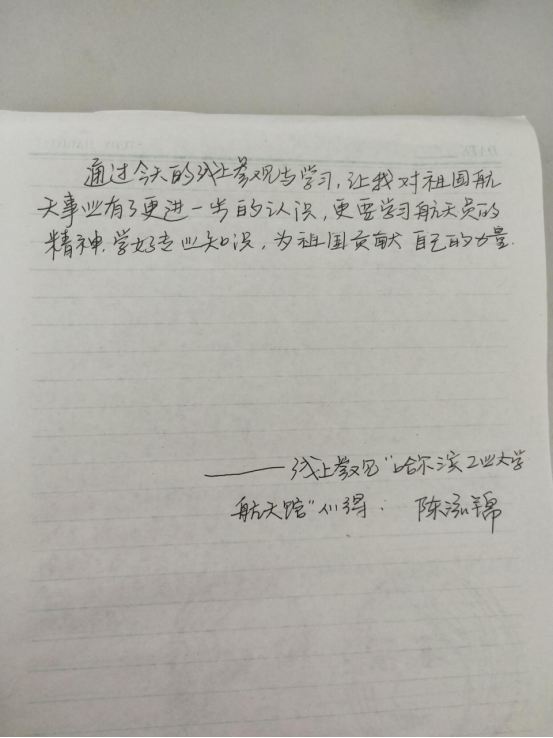 通过今天的线上参观与学习，让我对祖国航
天事业有了更进一步的认识，更要学习航天员的
精神.学好专业知识，为祖国贡献自己的力量.
——线上参观“哈尔滨工业大学
航天馆”心得. 陈泓锦